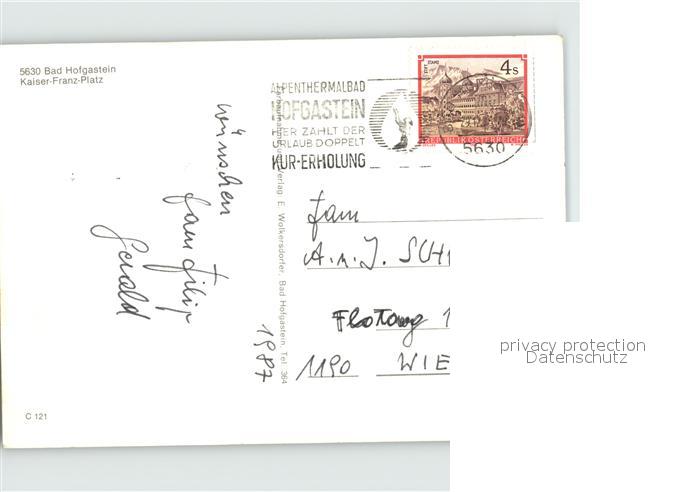 5630 Bad Hofgastein
Kaiser-Franz-Platz
wünschen
Fam Filip
Gerald
Verlag E. Wolkersdorfer, Bad Hofgastein, Tel. 364
1987
C 121
ALPENTHERMALBAD
HOFGASTEIN
HIER ZÄHLT DER
URLAUB DOPPELT
KUR-ERHOLUNG
STIFT STAMS
4 S
REPUBLIK ÖSTERREICH
5630
Fam
A. u. J. SCH
1
1190 WIE
privacy protection
Datenschutz